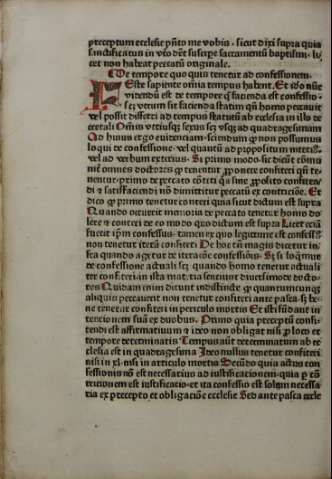 preceptum ecclesie pñto me vobis · sicut dixi supra quia
sanctificatus in vtero dẽt suscipe sacramentũ baptismi · li-
cet non habeat peccatũ originale.
De tempore quo quis tenetur ad confessionem.
Este sapiente omnia tempus habent. Et ideo nũc
videndũ est de tempore quo facienda est confessio
sez vtrum sit facienda statim quũ homo peccauit
vel possit differri ad tempus statutũ ab ecclesia in illo de
cretali Omnis vtriusqz sexus sez vsqz ad quadragesimam
Ad huius ergo euidentiam · sciendum q non possumus
loqui de confessione · vel quantũ ad propositum interius
vel ad verbum exterius. Si primo modo · sic dicũt cõmu
niter omnes doctores q tenentur proponere confiteri qñ te-
nentur penitere de peccato cõtriti quia sine proposito confiten-
di et satisfaciendi nõ dimittitur peccatũ ex contricõne. Et
dico q primo tenetur conteri quia sicut dictum est supra
Quando occurrit memoria de peccato tenetur homo do
lere et conteri eo modo quo dictum est supra Licet etiã
fuerit ipm confessus · tamen ex quo legittime est confess9
non tenetur iterũ confiteri De hoc tñ magis dicetur in-
fra quando agetur de iteratione confessionis. Si loqmur
de confessione actuali sez quando homo tenetur actuali
ter confiteri an ista materia fuerunt diuersi modi docto-
rum Quidam enim dicunt indistincte q quantumcunqz
aliquis peccauerit non tenetur confiteri ante pasca · licet be-
ne tenetur confiteri in periculo mortis Et isti fũdant in-
tencionem suã ex duobus. Primo quia preceptũ confi-
tendi est affirmatiuum et ideo non obligat nisi pro loco et
tempore determinatis Tempus aũt determinatum ab ec
clesia est in quadragesima Ideo nullus tenetur confiteri
nisi in xl · nisi in articulo mortis Secũdo quia actus con
fessionis nõ est necessarius ad iustificationem · quia per cõ
tricionem est iustificatio · et ita confessio est solum necessa
ria ex precepto et obligacione ecclesie Sed ante pasca eccle